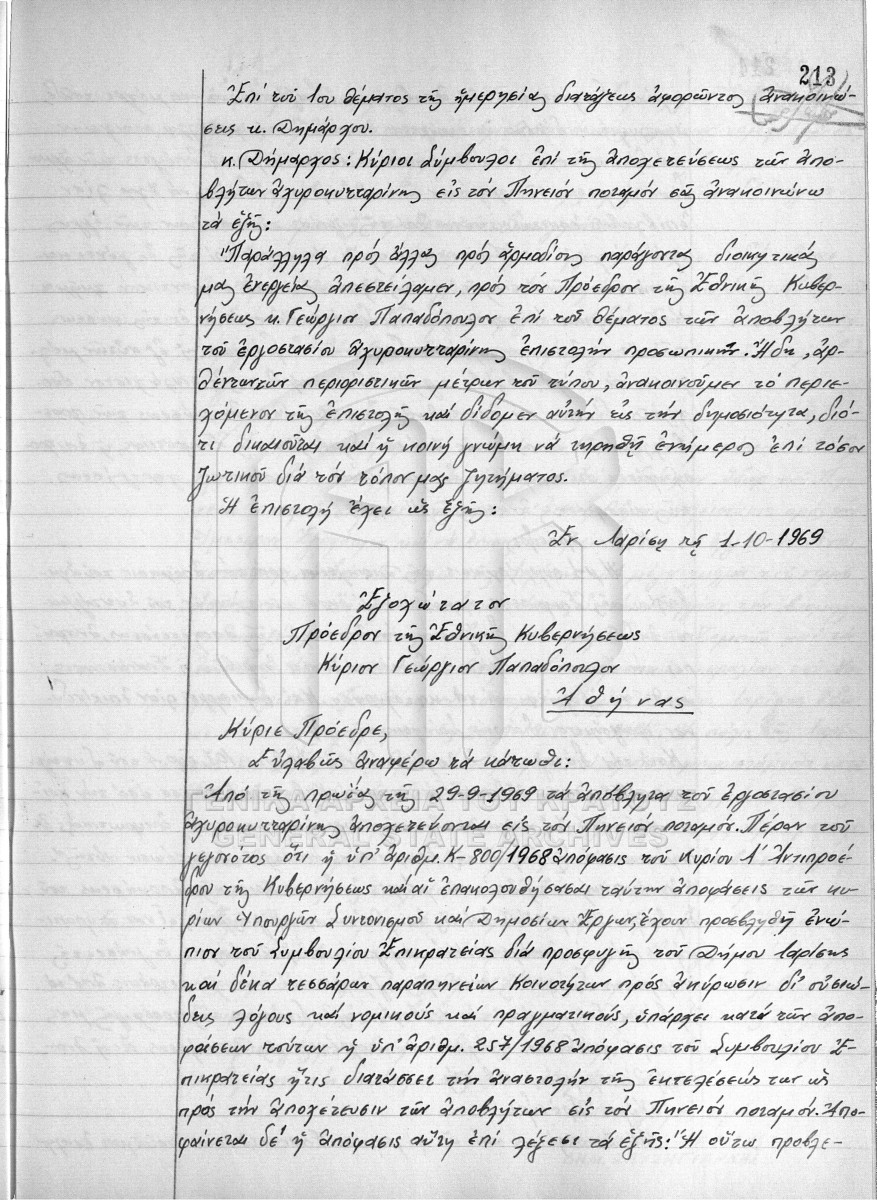 213
Ἐπί τοῦ 1ου θέματος τῆς ἡμερησίας διατάξεως ἀφορῶντος ἀνακοινώ-
σεις κ. Δημάρχου.
κ. Δήμαρχος: Κύριοι Σύμβουλοι ἐπί τῆς ἀποχετεύσεως τῶν ἀπο-
βλήτων ἀχυροκυτταρίνης εἰς τόν Πηνειόν ποταμόν σᾶς ἀνακοινώνω
τά ἑξῆς:
"Παράλληλα πρός ἄλλας πρός ἁρμοδίους παράγοντας διοικητικάς
μας ἐνεργείας ἀπεστείλαμεν, πρός τόν Πρόεδρον τῆς Ἐθνικῆς Κυβερ-
νήσεως κ. Γεώργιον Παπαδόπουλον ἐπί τοῦ θέματος τῶν ἀποβλήτων
τοῦ ἐργοστασίου ἀχυροκυτταρίνης ἐπιστολήν προσωπικήν. Ἤδη, ἀρ-
θέντων τῶν περιοριστικῶν μέτρων τοῦ τύπου, ἀνακοινοῦμεν τό περιε-
χόμενον τῆς ἐπιστολῆς καί δίδομεν αὐτήν εἰς τήν δημοσιότητα, διό-
τι δικαιοῦται καί ἡ κοινή γνώμη νά τηρηθῇ ἐνήμερος ἐπί τόσον
ζωτικοῦ διά τόν τόπον μας ζητήματος.
Ἡ ἐπιστολή ἔχει ὡς ἑξῆς:
Ἐν Λαρίσῃ τῇ 1-10-1969
Ἐξοχώτατον
Πρόεδρον τῆς Ἐθνικῆς Κυβερνήσεως
Κύριον Γεώργιον Παπαδόπουλον
Ἀθήνας
Κύριε Πρόεδρε,
Εὐλαβῶς ἀναφέρω τά κάτωθι:
Ἀπό τῆς πρωΐας τῆς 29-9-1969 τά ἀπόβλητα τοῦ ἐργοστασίου
ΓΕΝΙΚΑ ΑΡΧΕΙΑ ΤΟΥ ΚΡΑΤΟΥΣ
ἀχυροκυτταρίνης ἀποχετεύονται εἰς τόν Πηνειόν ποταμόν. Πέραν τοῦ
GENERAL STATE ARCHIVES
γεγονότος ὅτι ἡ ὑπ' ἀριθμ. Κ-800/1968 ἀπόφασις τοῦ Κυρίου Α' Ἀντιπροέ-
δρου τῆς Κυβερνήσεως καί αἱ ἐπακολουθήσασαι ταύτην ἀποφάσεις τῶν κυ-
ρίων Ὑπουργῶν Συντονισμοῦ καί Δημοσίων Ἔργων, ἔχουν προσβληθῆ ἐνώ-
πιον τοῦ Συμβουλίου Ἐπικρατείας διά προσφυγῆς τοῦ Δήμου Λαρίσης
καί δέκα τεσσάρων παραπηνείων Κοινοτήτων πρός ἀκύρωσιν δι' οὐσιώ-
δεις λόγους καί νομικούς καί πραγματικούς, ὑπάρχει κατά τῶν ἀπο-
φάσεων τούτων ἡ ὑπ' ἀριθμ. 257/1968 ἀπόφασις τοῦ Συμβουλίου Ἐ-
πικρατείας ἥτις διατάσσει τήν ἀναστολήν τῆς ἐκτελέσεώς των ὡς
πρός τήν ἀποχέτευσιν τῶν ἀποβλήτων εἰς τόν Πηνειόν ποταμόν. Ἀπο-
φαίνεται δέ ἡ ἀπόφασις αὕτη ἐπί λέξεσι τά ἑξῆς: "Ἡ οὕτω προβλε-